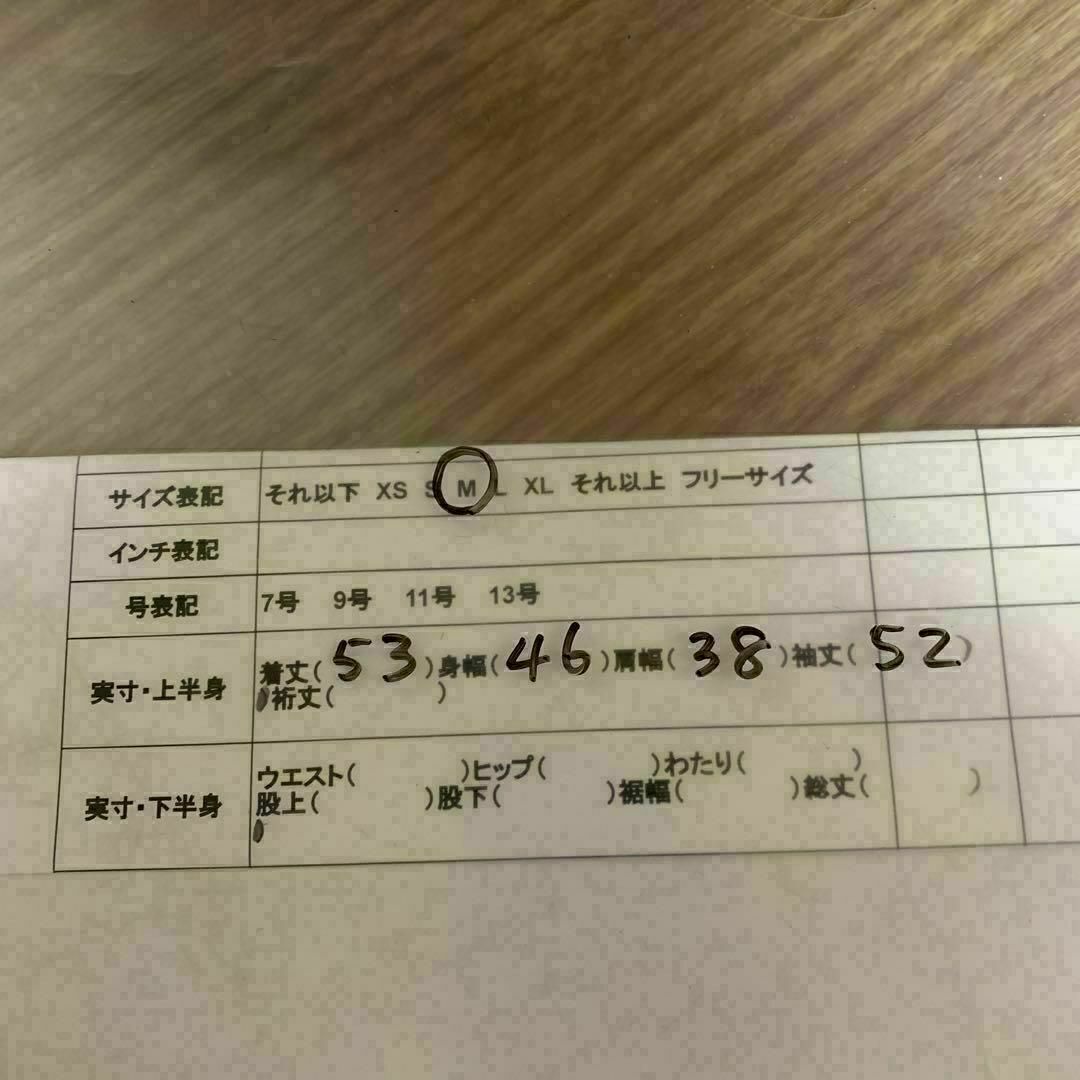 サイズ表記 それ以下 XS S M L XL それ以上 フリーサイズ
インチ表記
号表記 7号 9号 11号 13号
実寸・上半身 着丈( 53 )身幅( 46 )肩幅( 38 )袖丈( 52 )
裄丈( )
実寸・下半身 ウエスト( )ヒップ( )わたり( )
股上( )股下( )裾幅( )総丈( )